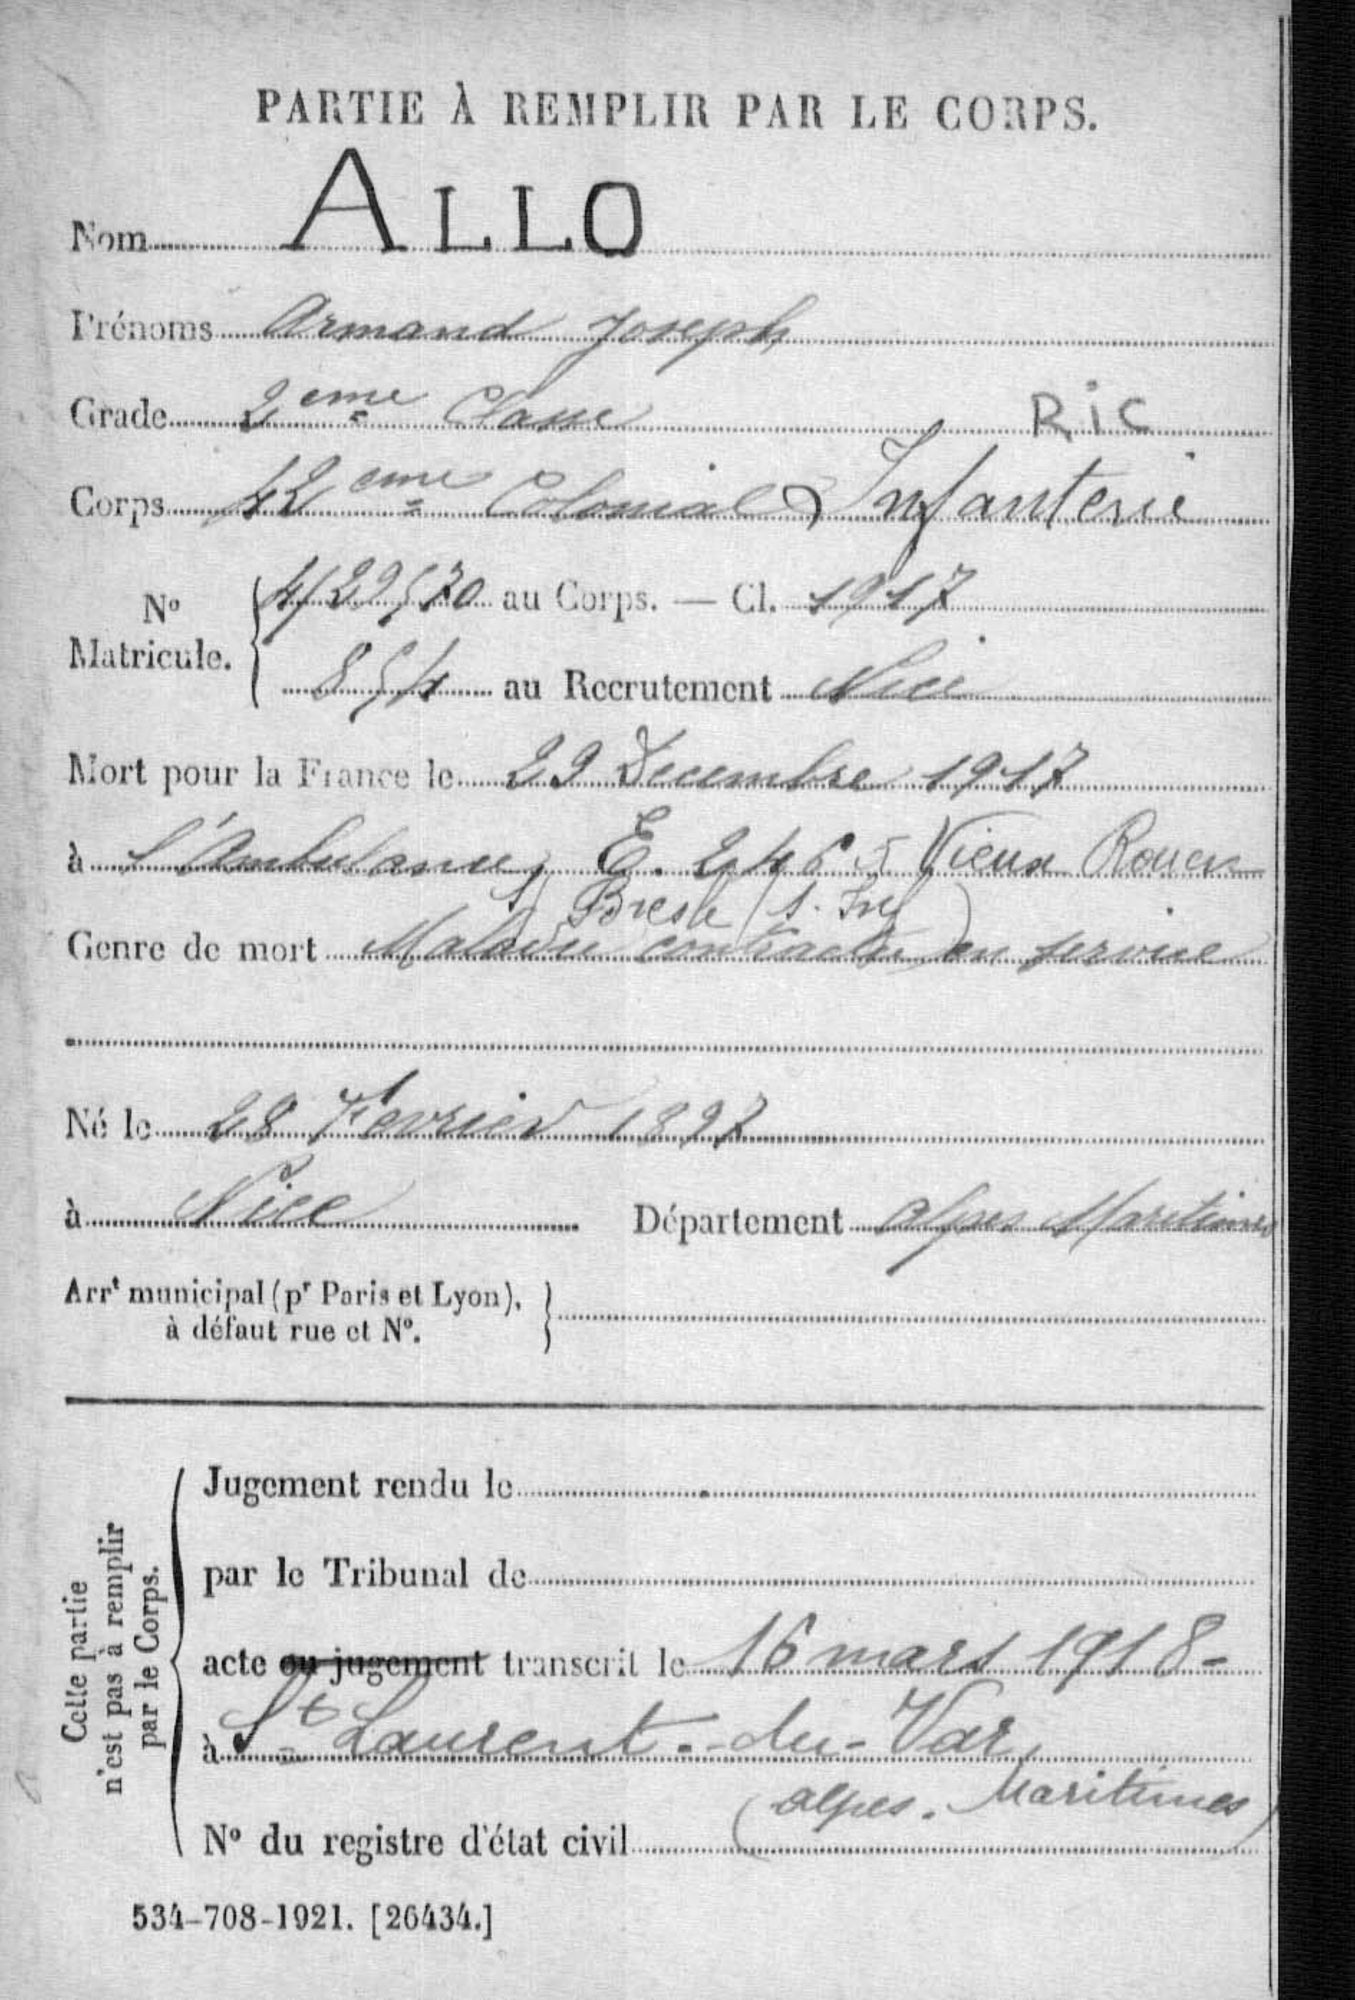 PARTIE À REMPLIR PAR LE CORPS.
Nom ALLO
Prénoms Armand Joseph
Grade 2eme Classe RIC
Corps 42eme Colonial Infanterie
No Matricule. 4/29570 au Corps. — Cl. 1917
854 au Recrutement Nice
Mort pour la France le 29 Decembre 1917
à l'Ambulance E. 246 Vieux Rouen
s/ Bresle (S. Inf)
Genre de mort Maladie contractée en service
Né le 28 Fevrier 1897
à Nice Département Alpes Maritimes
Arrt municipal (pr Paris et Lyon),
à défaut rue et No.
Cette partie
n'est pas à remplir
par le Corps.
Jugement rendu le
par le Tribunal de
acte ou jugement transcrit le 16 mars 1918-
à St Laurent-du-Var
(Alpes-Maritimes)
No du registre d'état civil
534-708-1921. [26434.]